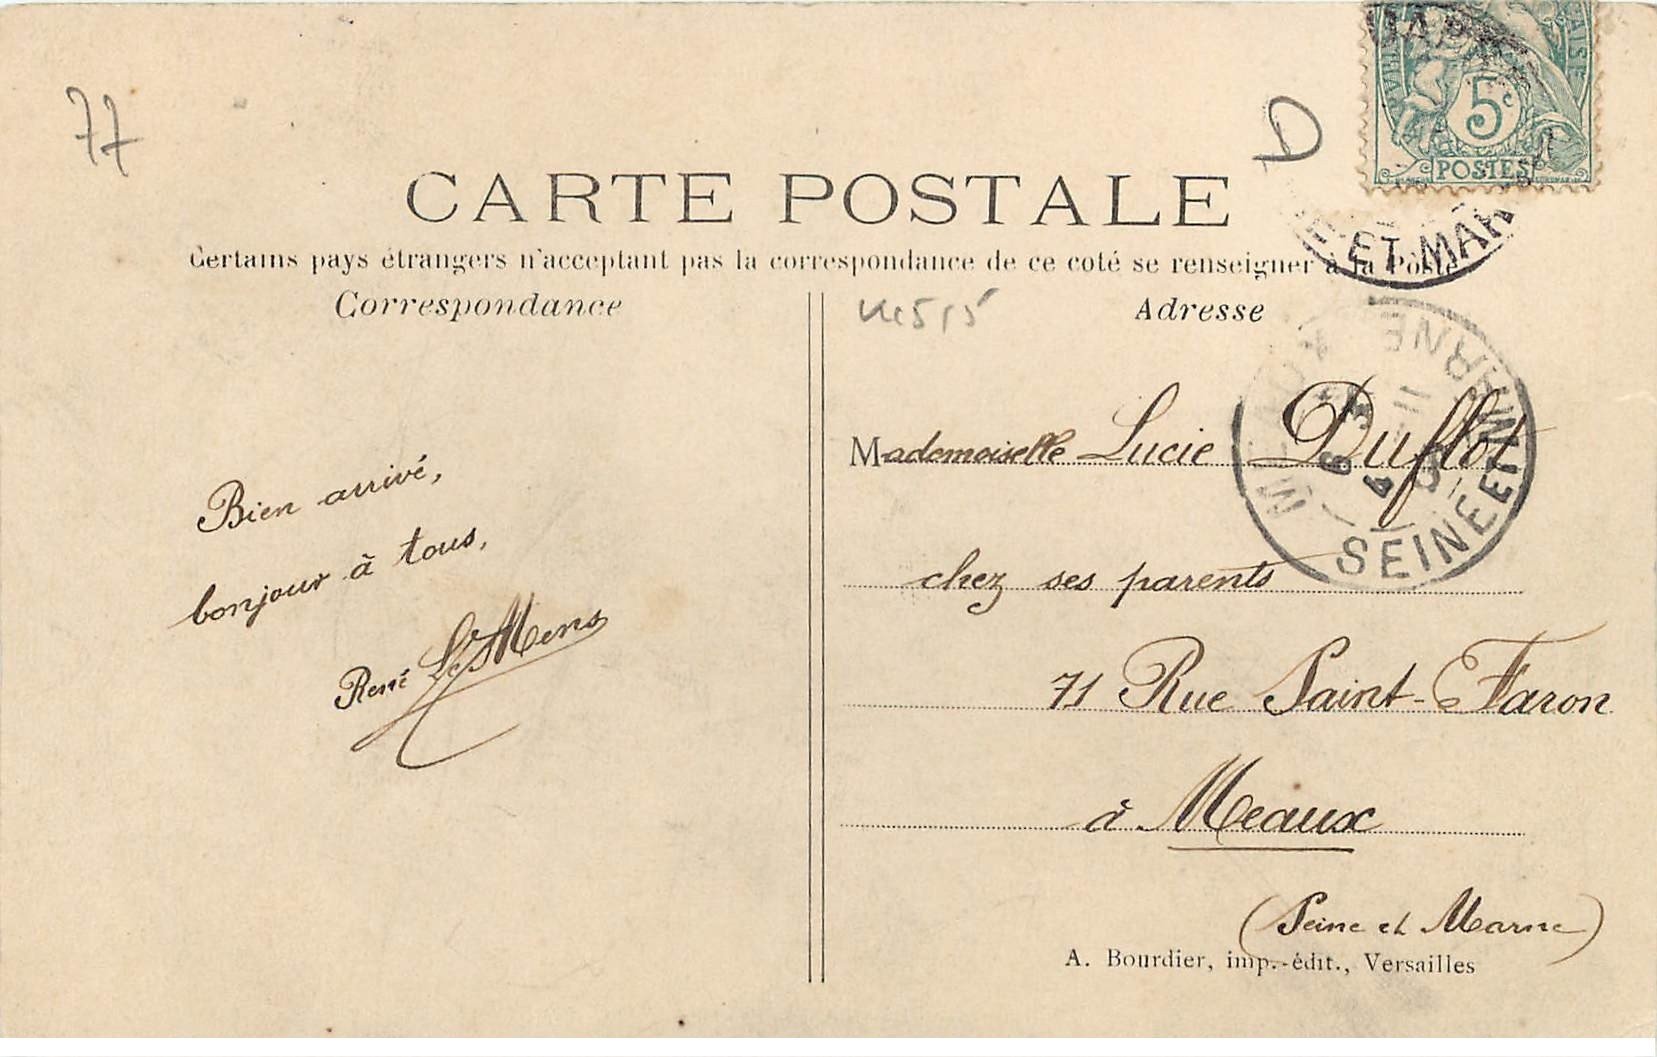 77
D
5c
POSTES
ET MAR
CARTE POSTALE
Certains pays étrangers n'acceptant pas la correspondance de ce coté se renseigner à la Poste
Correspondance
Adresse
Bien arrivé,
bonjour à tous,
René Le Mens
SEINE ET MARNE
Mademoiselle Lucie Duflot
chez ses parents
71 Rue Saint-Faron
à Meaux
(Seine et Marne)
A. Bourdier, imp.-édit., Versailles